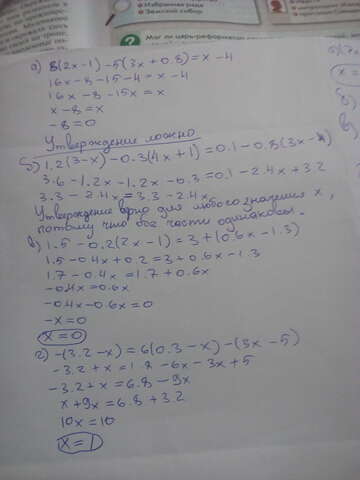 Избирательная
Земский собор
Мог ли царь-реформатор
а) 8(2x-1)-5(3x+0.8)=x-4
16x-8-15-4=x-4
16x-8-15x=x
x-8=x
-8=0
Утверждение ложно
б) 1.2(3-x)-0.3(4x+1)=0.1-0.8(3x-4)
3.6-1.2x-1.2x-0.3=0.1-2.4x+3.2
3.3-2.4x=3.3-2.4x
Утверждение верно для любого значения x,
потому что обе части одинаковы.
в) 1.5-0.2(2x-1)=3+(0.6x-1.3)
1.5-0.4x+0.2=3+0.6x-1.3
1.7-0.4x=1.7+0.6x
-0.4x=0.6x
-0.4x-0.6x=0
-x=0
x=0
г) -(3.2-x)=6(0.3-x)-(3x-5)
-3.2+x=1.8-6x-3x+5
-3.2+x=6.8-9x
x+9x=6.8+3.2
10x=10
x=1
б)
в)